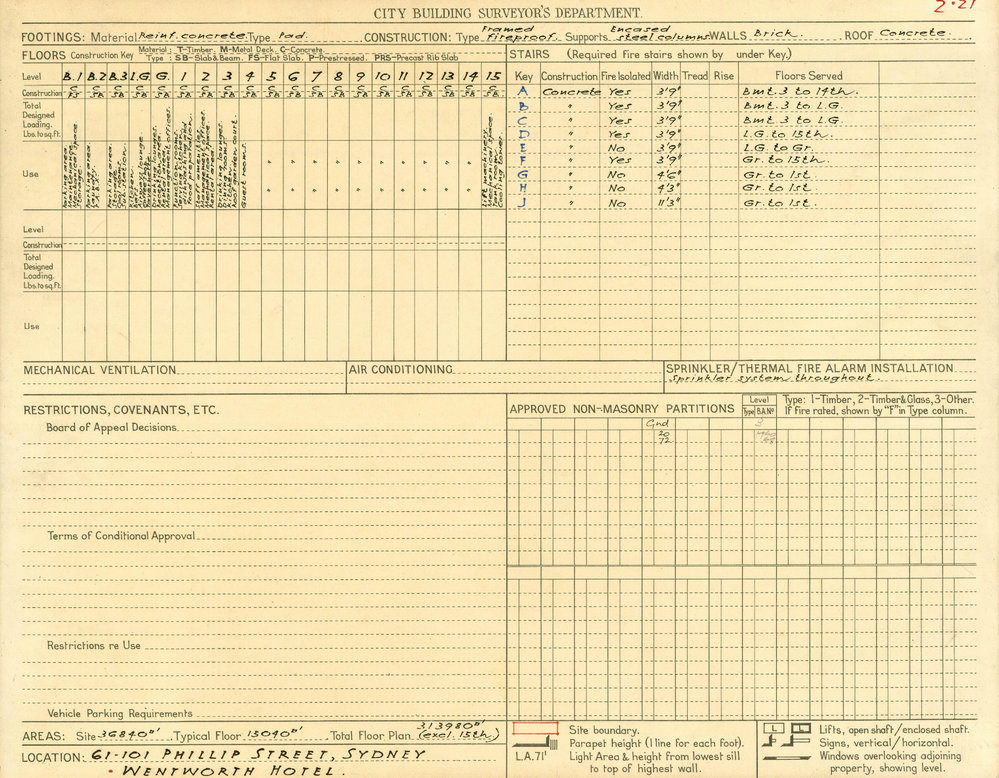 CITY BUILDING SURVEYOR'S DEPARTMENT.
2·21
FOOTINGS: Material Reinf. concrete. Type Pad. CONSTRUCTION: Type Framed fireproof. Supports Encased steel columns. WALLS Brick. ROOF Concrete.
FLOORS Construction Key Material: T-Timber. M-Metal Deck. C-Concrete.
Type: SB-Slab & Beam. FS-Flat Slab. P-Prestressed. PRS-Precast Rib Slab
Level B.1 B.2 B.3 L.G. G. 1 2 3 4 5 6 7 8 9 10 11 12 13 14 15
Construction
Total Designed Loading. Lbs. to sq. ft.
Use
Parking area.
Maintenance
Storage space
Parking area.
Laundry
P.A.B.X.
Parking area.
Storage
Sub. station.
Kitchen
Bar
Drinking lounges.
Management offices.
Function rooms.
Food preparation.
Staff amenities
Mechanical space
Drinking lounges.
Roof garden court.
Guest rooms.
" " " " " " " " " "
" " " " " " " " " "
Lift machinery.
Mechanical space.
Cooling tower.
Level
Construction
Total Designed Loading. Lbs. to sq. ft.
Use
STAIRS (Required fire stairs shown by under Key.)
Key Construction Fire Isolated Width Tread Rise Floors Served
A Concrete Yes 3'9" Bmt. 3 to 14th.
B " Yes 3'9" Bmt. 3 to L.G.
C " Yes 3'9" Bmt. 3 to L.G.
D " Yes 3'9" L.G. to 15th.
E " No 3'9" L.G. to Gr.
F " Yes 3'9" Gr. to 15th.
G " No 4'6" Gr. to 1st.
H " No 4'3" Gr. to 1st.
J " No 11'3" Gr. to 1st.
MECHANICAL VENTILATION
AIR CONDITIONING
SPRINKLER/THERMAL FIRE ALARM INSTALLATION
Sprinkler system throughout.
RESTRICTIONS, COVENANTS, ETC.
Board of Appeal Decisions
Terms of Conditional Approval
Restrictions re Use
Vehicle Parking Requirements
APPROVED NON-MASONRY PARTITIONS Level Type B.A.Nº Type: 1-Timber, 2-Timber & Glass, 3-Other.
If Fire rated, shown by "F" in Type column.
Gnd
20
72
AREAS: Site 36840□' Typical Floor 13040□' Total Floor Plan. 313980□' (excl. 15th)
LOCATION: 61-101 PHILLIP STREET, SYDNEY
• WENTWORTH HOTEL.
Site boundary.
Parapet height (1 line for each foot).
L.A.71' Light Area & height from lowest sill to top of highest wall.
L L Lifts, open shaft/enclosed shaft.
Signs, vertical/horizontal.
Windows overlooking adjoining property, showing level.